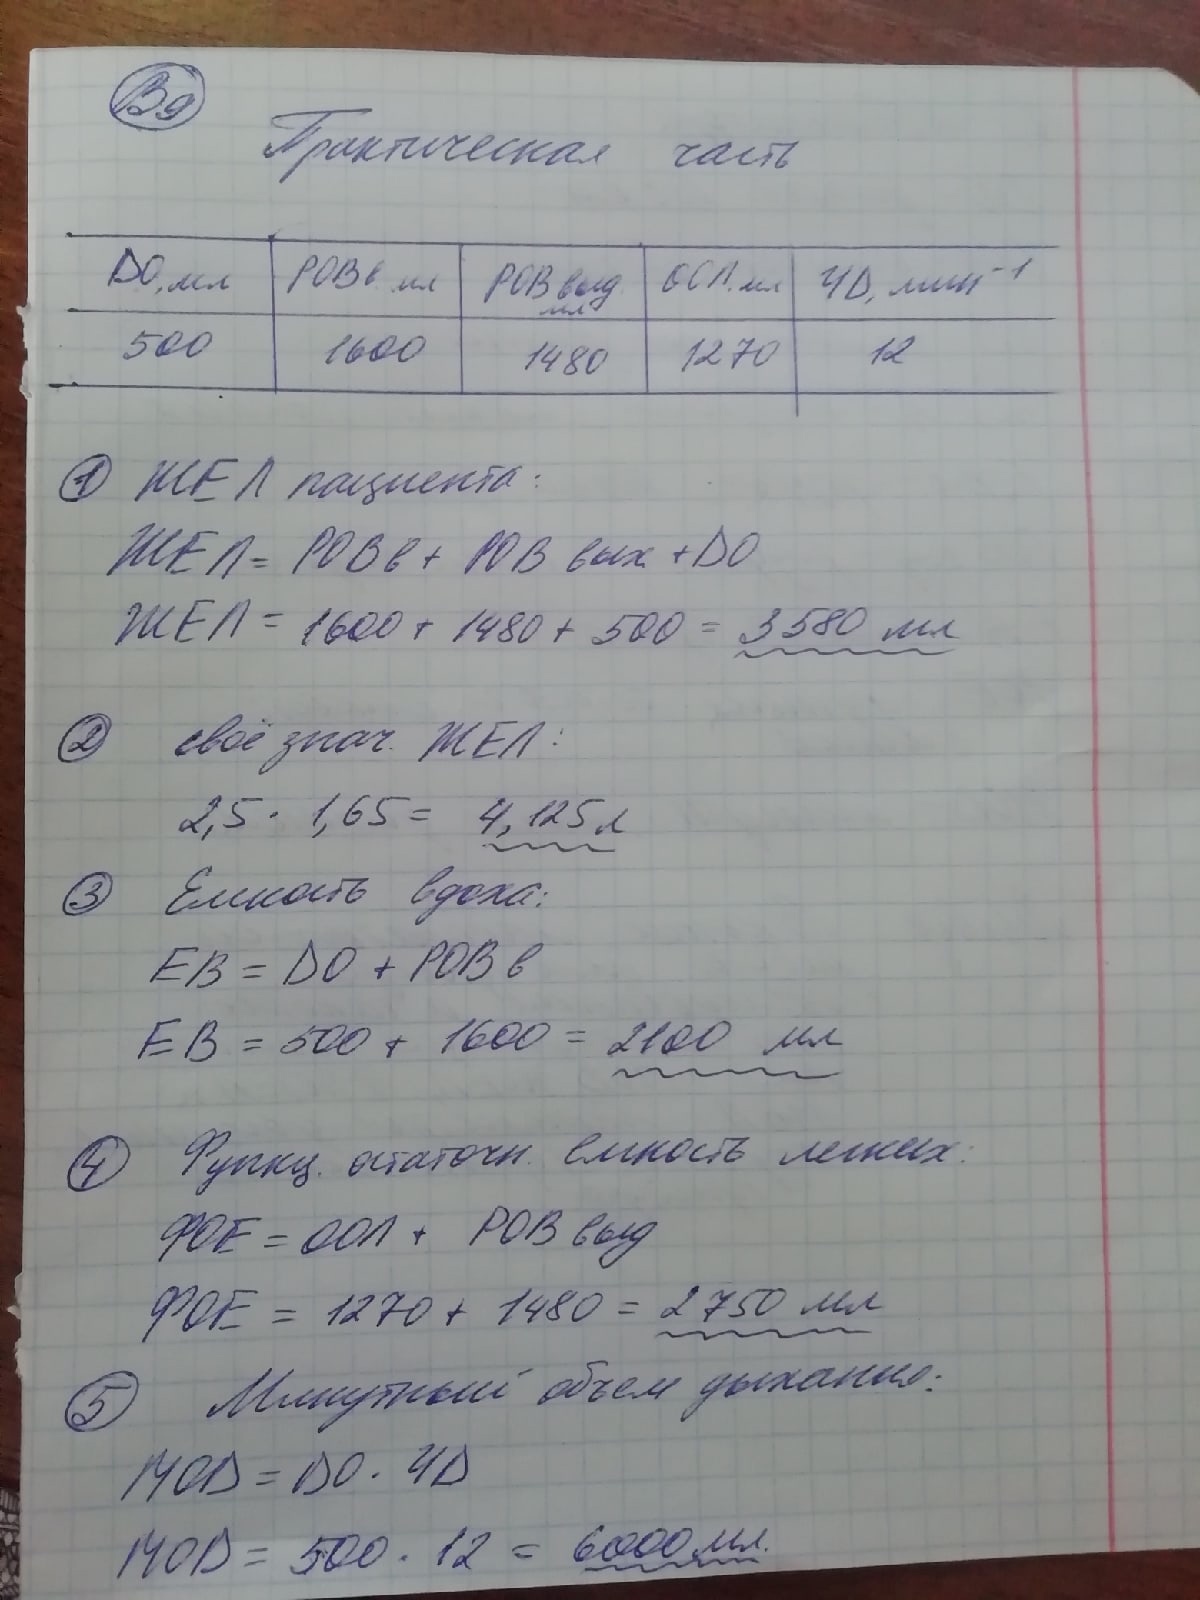 Вд
Практическая часть
DO, мл РОВв. мл РОВ выд. мл ООЛ. мл ЧD, мин⁻¹
500 1600 1480 1270 12
① ЖЕЛ пациента:
ЖЕЛ = РОВв + РОВ вых + DO
ЖЕЛ = 1600 + 1480 + 500 = 3580 мл
② своё знач. ЖЕЛ:
2,5 · 1,65 = 4,125 л
③ Емкость вдоха:
ЕВ = DO + РОВ в
ЕВ = 500 + 1600 = 2100 мл
④ Функц. остаточн. емкость легких:
ФОЕ = ООЛ + РОВ выд
ФОЕ = 1270 + 1480 = 2750 мл
⑤ Минутный объем дыхания:
МОD = DO · ЧD
МОD = 500 · 12 = 6000 мл.